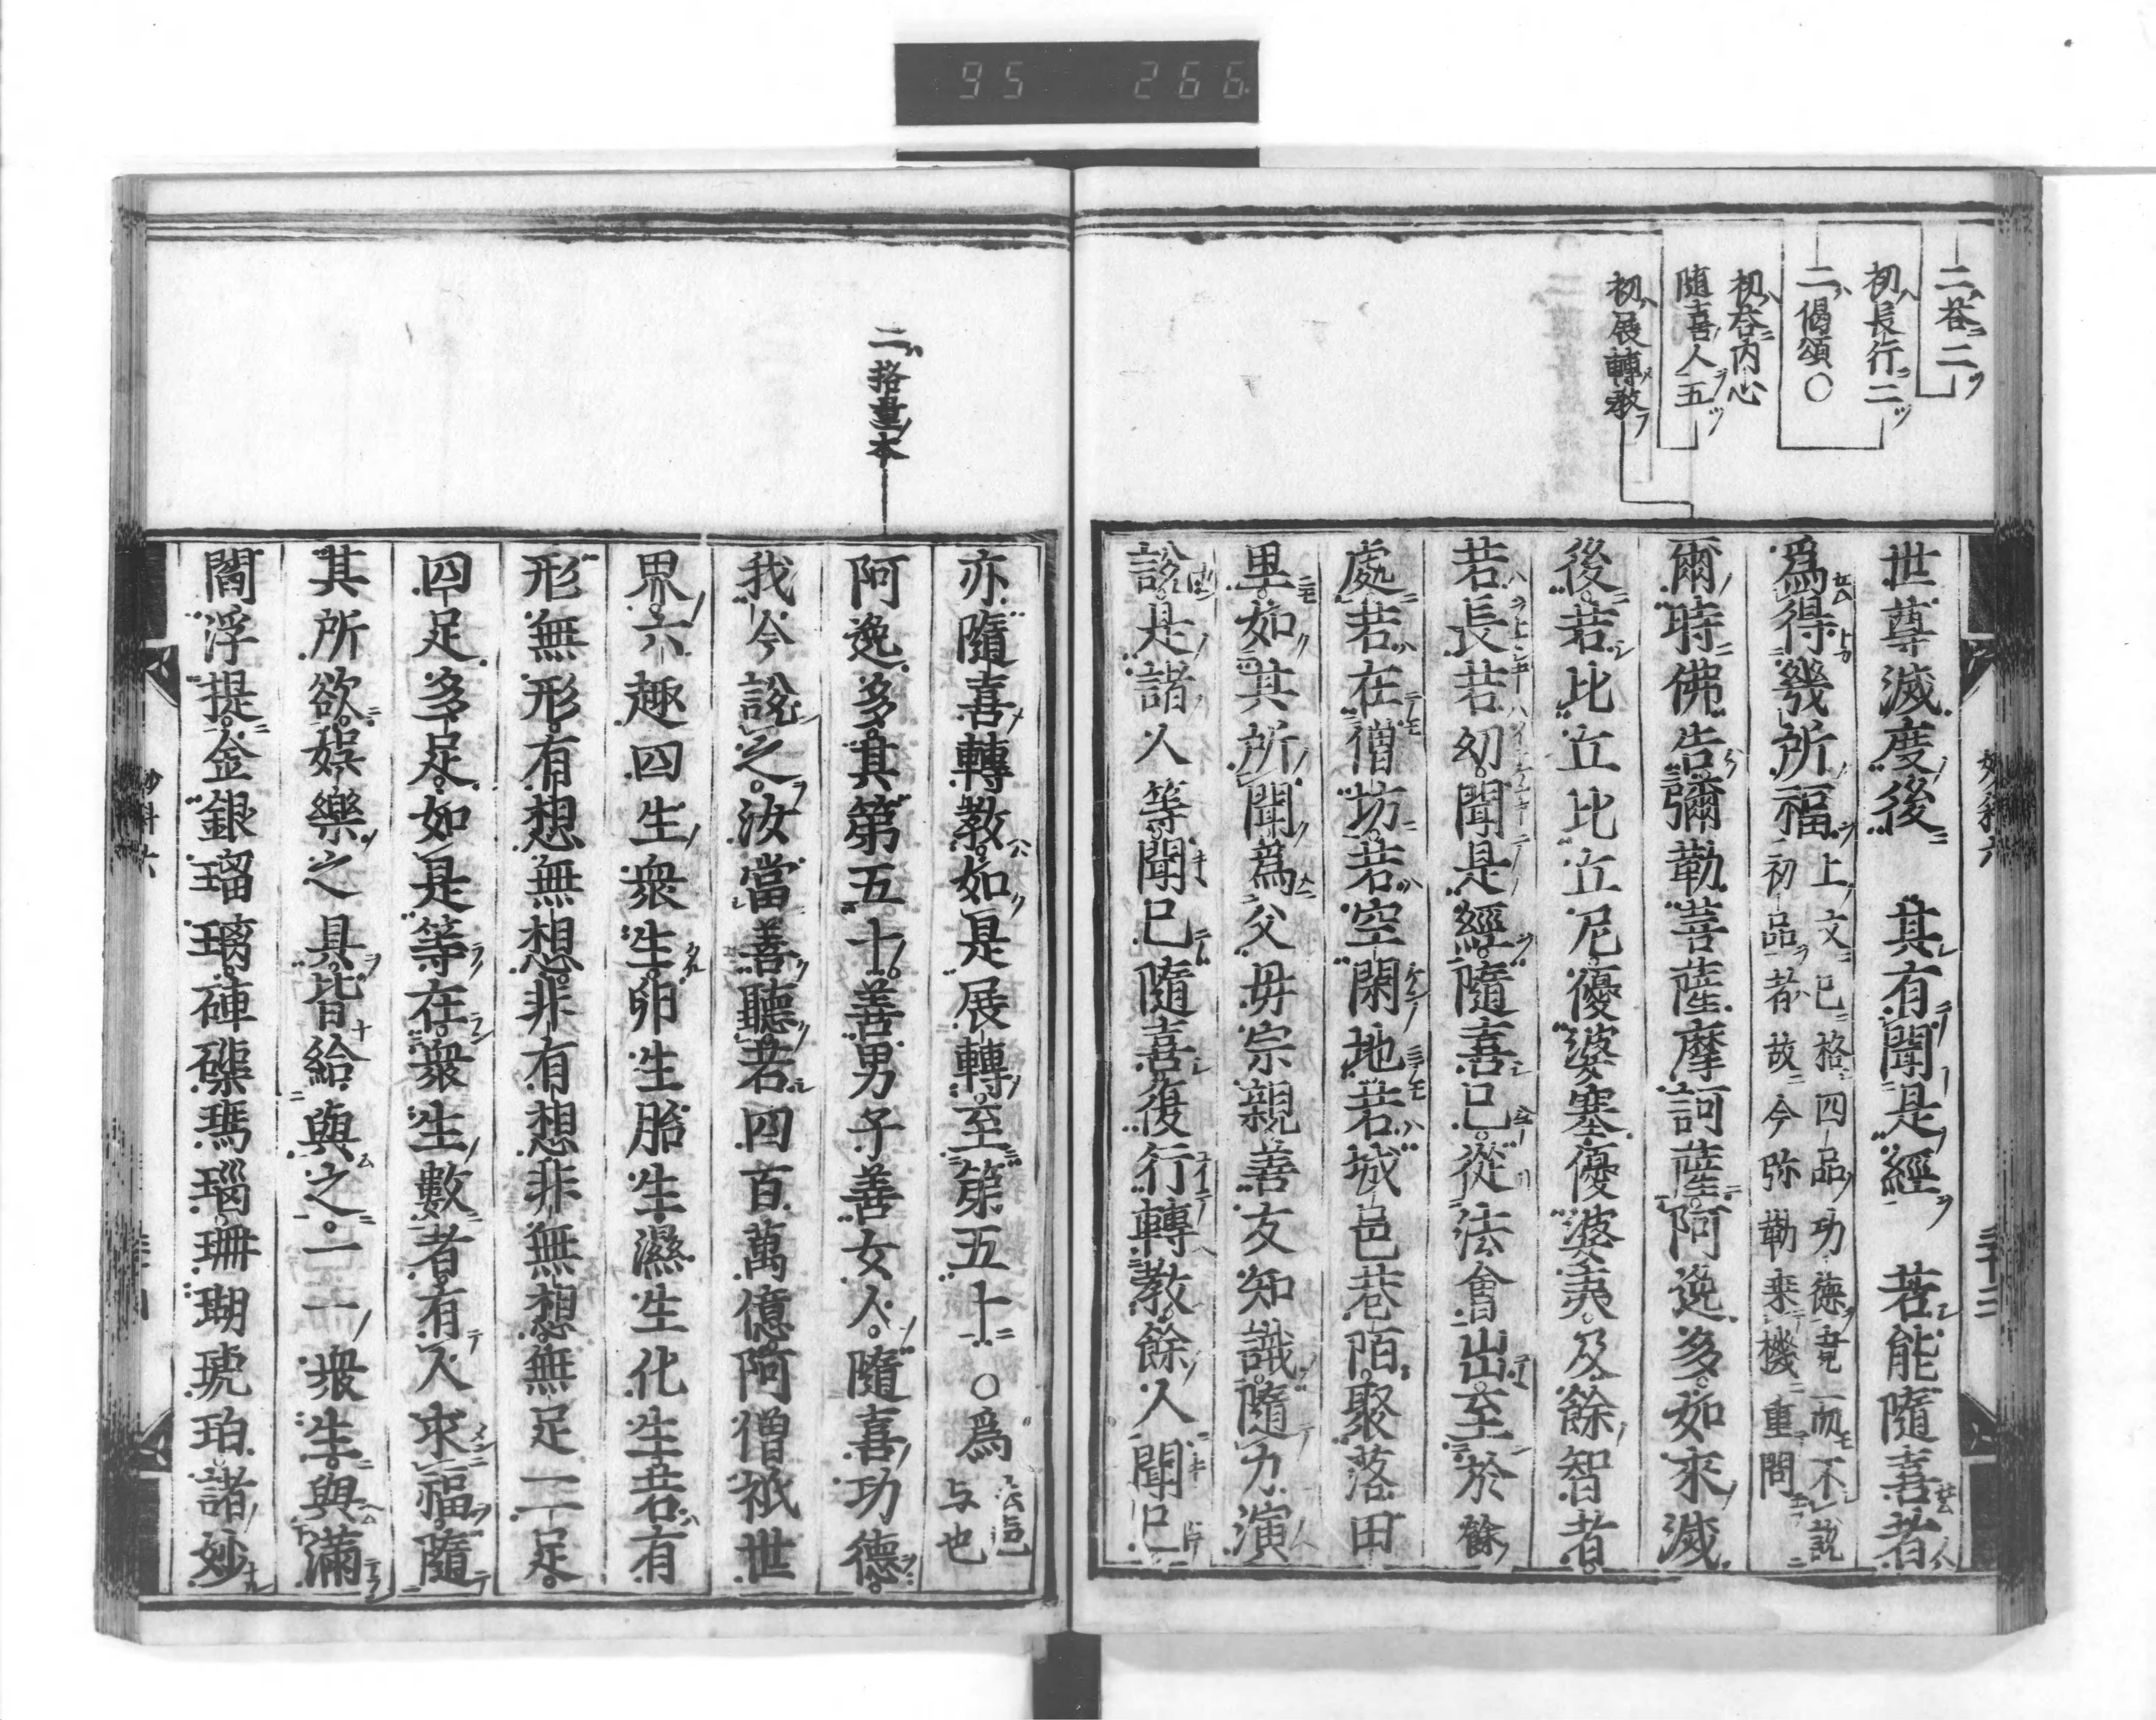 95 266
二答二
初長行二
二偈頌〇
初答内心
随喜人五
初展轉教
世尊滅度後 其有聞是經 若能隨喜者
爲得幾所福
上文已格四品功德竟而不說
初品者故今弥勒来機重問
爾時佛告彌勒菩薩摩訶薩阿逸多如來滅
後若比丘比丘尼優婆塞優婆夷及餘智者
若長若幼聞是經隨喜已從法會出至於餘
處若在僧坊若空閑地若城邑巷陌聚落田
里如其所聞爲父母宗親善友知識隨力演
說是諸人等聞已隨喜復行轉教餘人聞已
二挌量本
亦隨喜轉教如是展轉至第五十〇爲
去声
与也
阿逸多其第五十善男子善女人隨喜功德
我今說之汝當善聽若四百萬億阿僧祇世
界六趣四生衆生卵生胎生濕生化生若有
形無形有想無想非有想非無想無足二足
四足多足如是等在衆生數者有人求福隨
其所欲娛樂之具皆給與之一一衆生與滿
閻浮提金銀瑠璃硨磲瑪瑙珊瑚琥珀諸妙